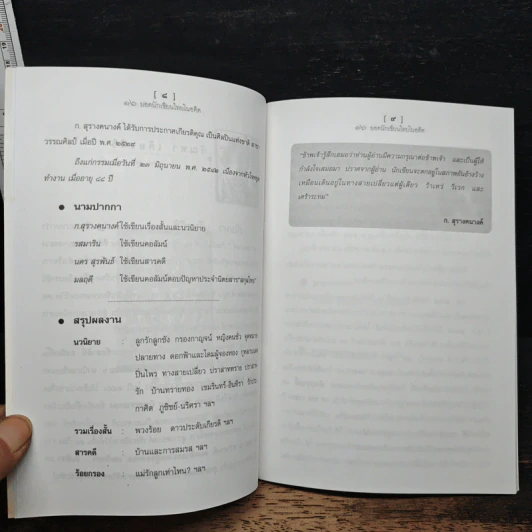 [ ๘ ]
๑๙๒ ยอดนักเขียนไทยในอดีต
ก. สุรางคนางค์ ได้รับการประกาศเกียรติคุณ เป็นศิลปินแห่งชาติ สาขา
วรรณศิลป์ เมื่อปี พ.ศ. ๒๕๒๙
ถึงแก่กรรมเมื่อวันที่ ๒๓ มิถุนายน พ.ศ. ๒๕๔๒ เนื่องจากหัวใจหยุด
ทำงาน เมื่ออายุ ๘๘ ปี
● นามปากกา
ก.สุรางคนางค์ ใช้เขียนเรื่องสั้นและนวนิยาย
รสมาริน ใช้เขียนคอลัมน์
นคร สุรพันธ์ ใช้เขียนสารคดี
มลฤดี ใช้เขียนคอลัมน์ตอบปัญหาประจำนิตยสาร
● สรุปผลงาน
นวนิยาย : ลูกรักลูกชัง กรองกาญจน์ หญิงคนชั่ว
ปลายทาง ดอกฟ้าและโดมผู้จองหอง
ปิ่นไพร ทางสายเปลี่ยว ปราสาททราย
รัก บ้านทรายทอง เขมรินทร์-อินทิรา
ภูชิชย์-นริศรา ฯลฯ
รวมเรื่องสั้น : พวงร้อย ดาวประดับเกียรติ ฯลฯ
สารคดี : บ้านและการสมรส ฯลฯ
ร้อยกรอง : แม่รักลูกเท่าไหน? ฯลฯ
[ ๙ ]
๑๙๒ ยอดนักเขียนไทยในอดีต
"ข้าพเจ้ารู้สึกเสมอว่าท่านผู้อ่านมีความกรุณาต่อข้าพเจ้า และเป็นผู้ให้
กำลังใจเสมอมา ปราศจากผู้อ่าน นักเขียนจะตกอยู่ในสภาพอันอ้างว้าง
เหมือนเดินอยู่ในทางสายเปลี่ยวแต่ผู้เดียว ว้าเหว่ วิเวก และ
เศร้าระทม"
ก. สุรางคนางค์